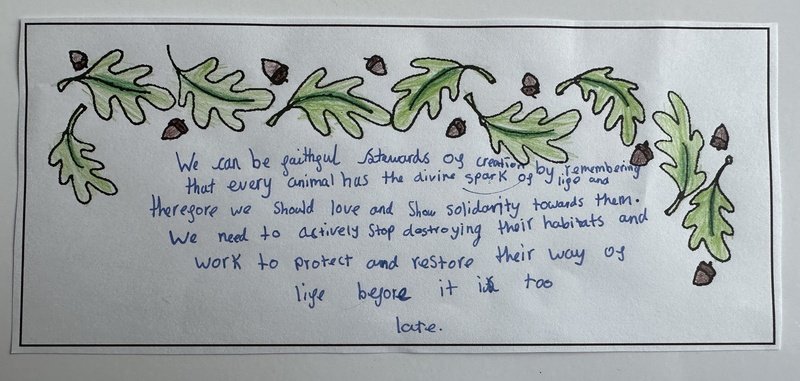 We can be faithful stewards of creation by remembering
that every animal has the divine spark of life and
therefore we should love and show solidarity towards them.
We need to actively stop destroying their habitats and
work to protect and restore their way of
life before it is too
late.